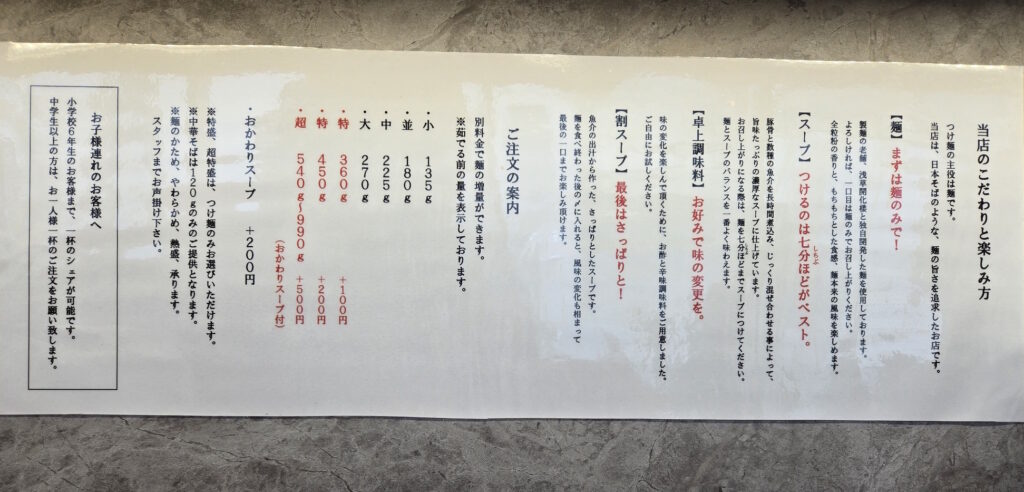 当店のこだわりと楽しみ方
つけ麺の主役は麺です。
当店は、日本そばのような、麺の旨さを追求したお店です。
【麺】まずは麺のみで！
製麺の老舗、浅草開化楼と独自開発した麺を使用しております。
よろしければ、一口目は麺のみでお召し上がりください。
全粒粉の香りと、もちもちとした食感、麺本来の風味を楽しめます。
【スープ】つけるのは七分ほどがベスト。
しちぶ
豚骨と数種の魚介を長時間煮込み、じっくり混ぜ合わせる事によって、
旨味たっぷりの濃厚なスープに仕上げています。
お召し上がりになる際は、麺を七分ほどまでスープにつけてください。
麺とスープのバランスを一番よく味わえます。
【卓上調味料】お好みで味の変更を。
味の変化を楽しんで頂くために、お酢と辛味調味料をご用意しました。
ご自由にお試しください。
【割スープ】最後はさっぱりと！
魚介の出汁から作った、さっぱりとしたスープです。
麺を食べ終わった後の〆に入れると、風味の変化も相まって
最後の一口までお楽しみ頂けます。
ご注文の案内
別料金で麺の増量ができます。
※茹でる前の量を表示しております。
・小 135g
・並 180g
・中 225g
・大 270g
・特 360g +100円
・特 450g +200円
・超 540g～990g +500円
(おかわりスープ付)
・おかわりスープ +200円
※特盛、超特盛は、つけ麺のみお選びいただけます。
※中華そばは120gのみのご提供となります。
※麺のかため、やわらかめ、熱盛、承ります。
スタッフまでお声掛け下さい。
お子様連れのお客様へ
小学校6年生のお客様まで、一杯のシェアが可能です。
中学生以上の方は、お一人様一杯のご注文をお願い致します。